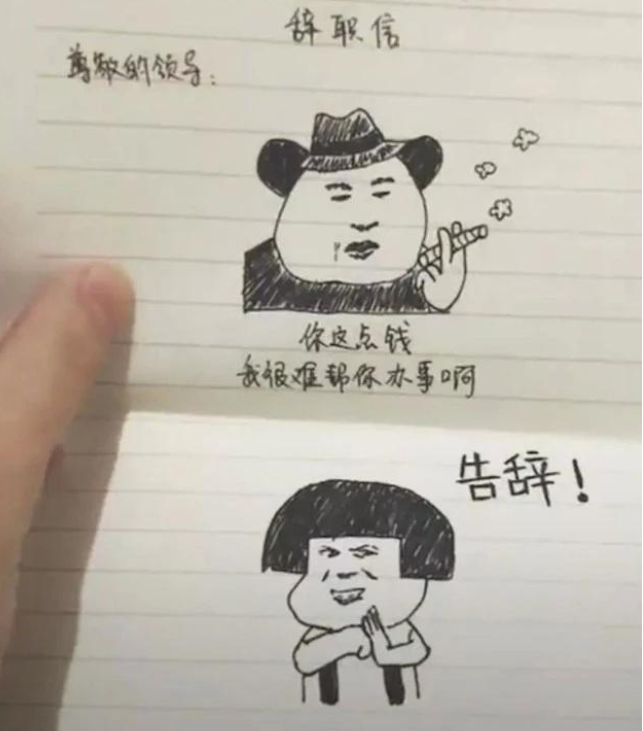 辞职信
尊敬的领导：
你这点钱
我很难帮你办事啊
告辞！